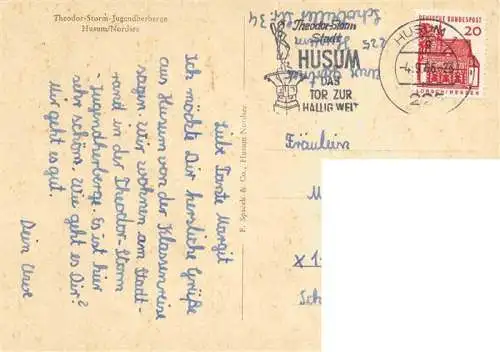 Theodor-Storm-Jugendherberge
Husum/Nordsee
Liebe Tante Margit
Ich möchte Dir herzliche Grüße
aus Husum von der Klassenreise
sagen. Wir wohnen am Stadt-
rand in der Theodor-Storm
-Jugendherberge. Es ist hier
sehr schön. Wie geht es Dir?
Mir geht es gut.
Dein Uwe
F. Spaeck & Co., Husum Nordsee
Theodor-Storm
Stadt
HUSUM
DAS
TOR ZUR
HALLIG WELT
HUSUM
DEUTSCHE BUNDESPOST
20
LORSCH/HESSEN
225
Husum
Fräulein
M
X 1
Sch